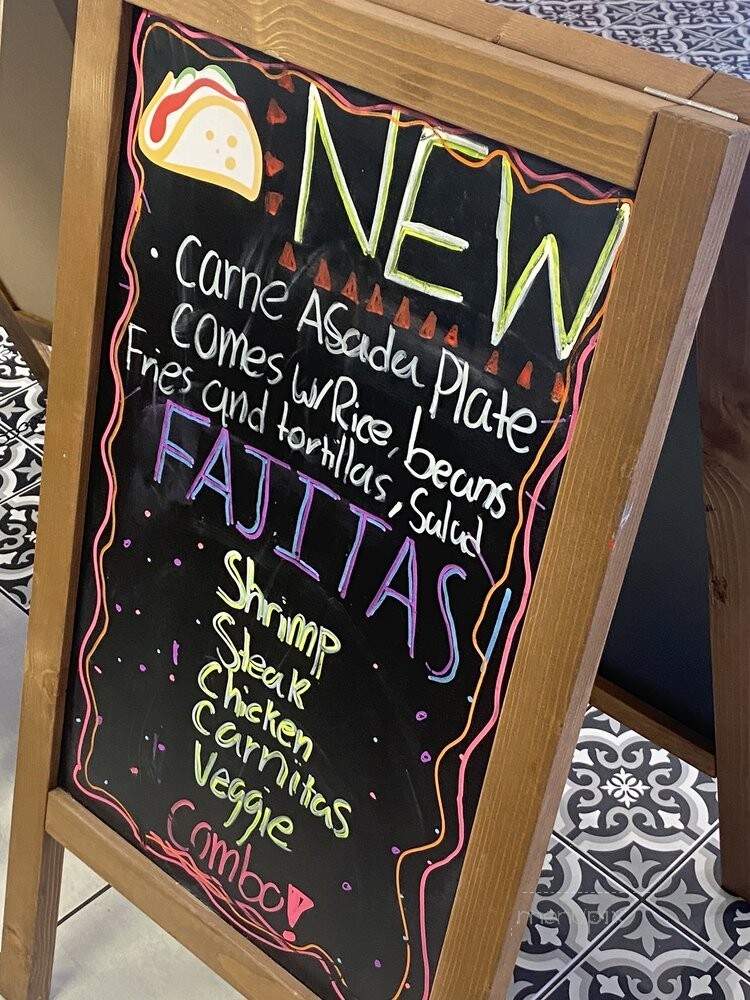 NEW
• Carne Asada Plate
comes w/Rice, beans
Fries and tortillas, Salad
FAJITAS!
Shrimp
Steak
Chicken
Carnitas
Veggie
Combo!
menupix